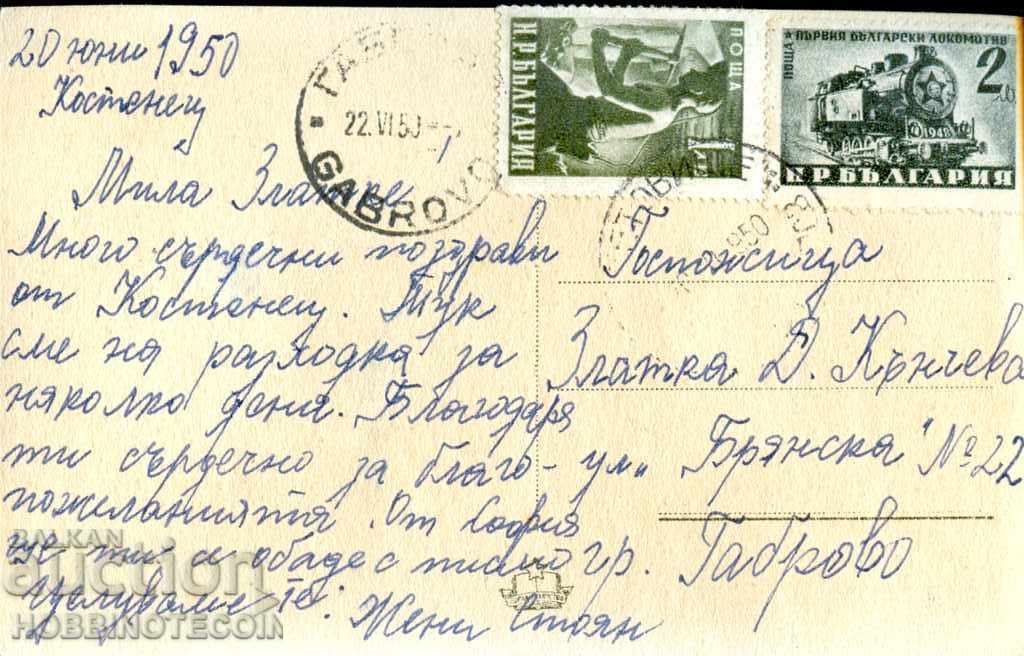 20 юни 1950
Костенец
ГАБ
22.VI.50
GABROVO
ПОЩА
Н.Р.БЪЛГАРИЯ
ПЪРВИЯ БЪЛГАРСКИ ЛОКОМОТИВ
1948
ПОЩА
2 ЛВ.
1948
НР БЪЛГАРИЯ
1950
Мила Златке
Много сърдечни поздрави
от Костенец. Тук
сме на разходка за
няколко дена. Благодаря
ти сърдечно за благо-
пожеланията. От София
ще ти се обадя с писмо
Целуваме те: Жени Стоян
Госпожица
Златка Д. Кънчева
ул. "Брянска" № 22
гр. Габрово
BALKAN
auction
HOBBINOTECOIN